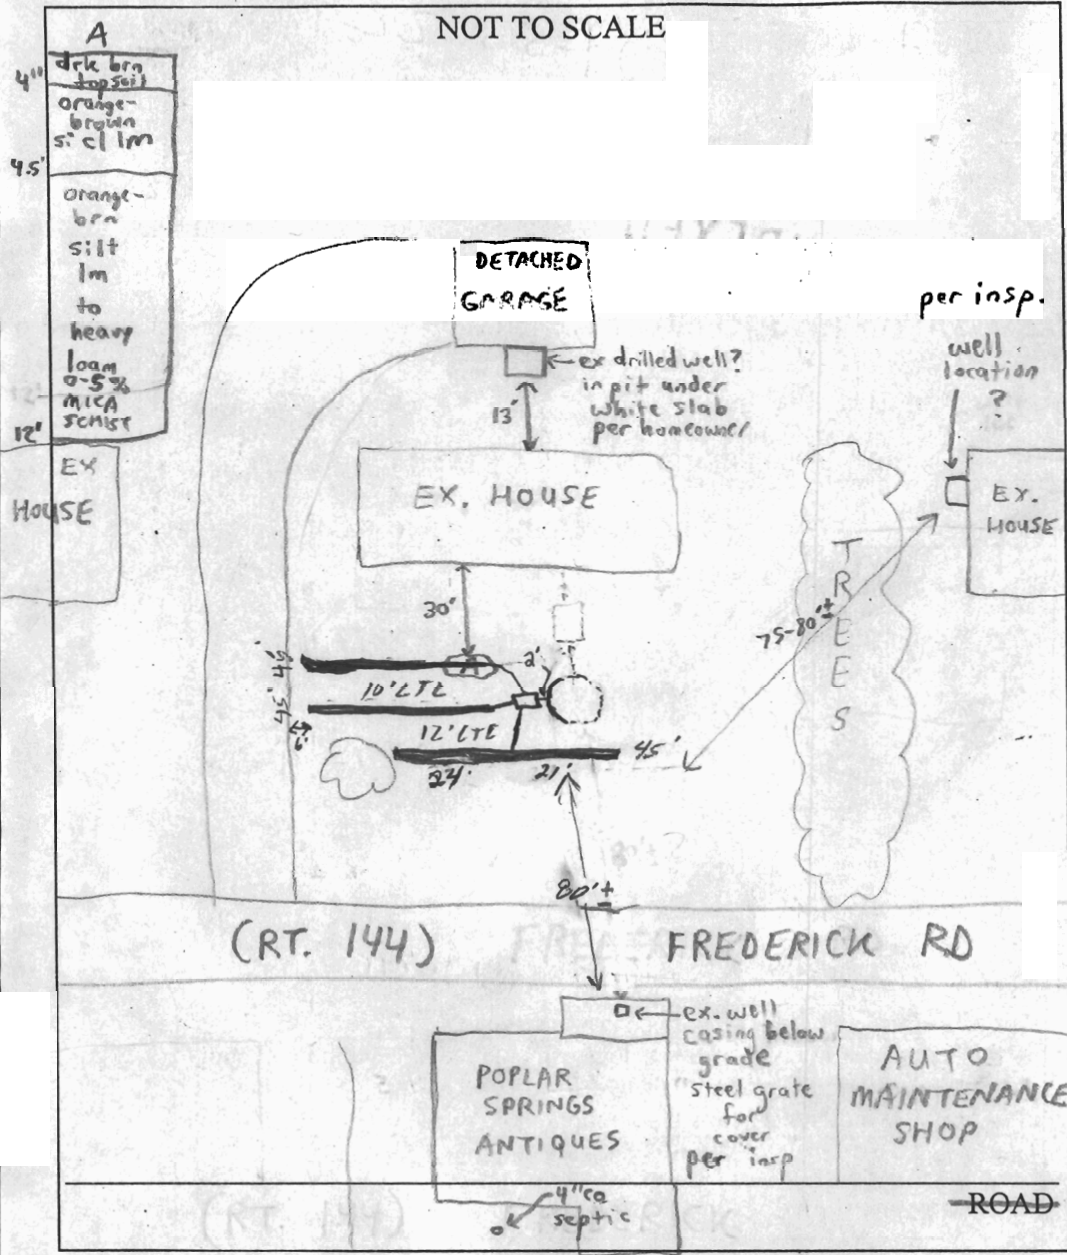 NOT TO SCALE
A
4"
drk brn
topsoil
orange-
brown
si cl lm
4.5'
orange-
brn
silt
lm
to
heavy
loam
0-5%
MICA
SCHIST
12'
12'
DETACHED
GARAGE
ex drilled well?
in pit under
white slab
per homeowner
13'
per insp.
well
location
?
EX
HOUSE
EX. HOUSE
EX.
HOUSE
TREES
75-80'±
30'
2'
A
45'
10' LTE
45'
6'
12' LTE
45'
24'
21'
80'±
(RT. 144)
FREDERICK RD
ex. well
casing below
grade
steel grate
for
cover
per insp
POPLAR
SPRINGS
ANTIQUES
AUTO
MAINTENANCE
SHOP
ROAD
4" co
septic